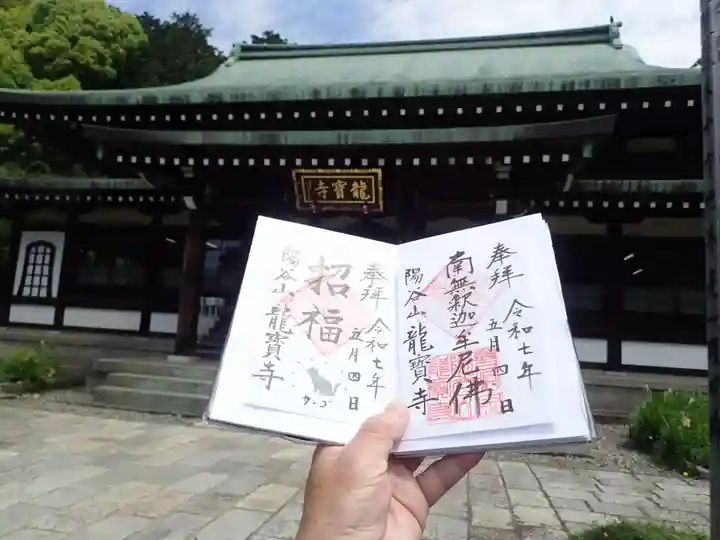 龍寶寺
奉拜
令和七年
五月四日
南無釈迦牟尼佛
陽谷山龍寶寺
奉拜
令和七年
五月四日
招福
陽谷山龍寶寺